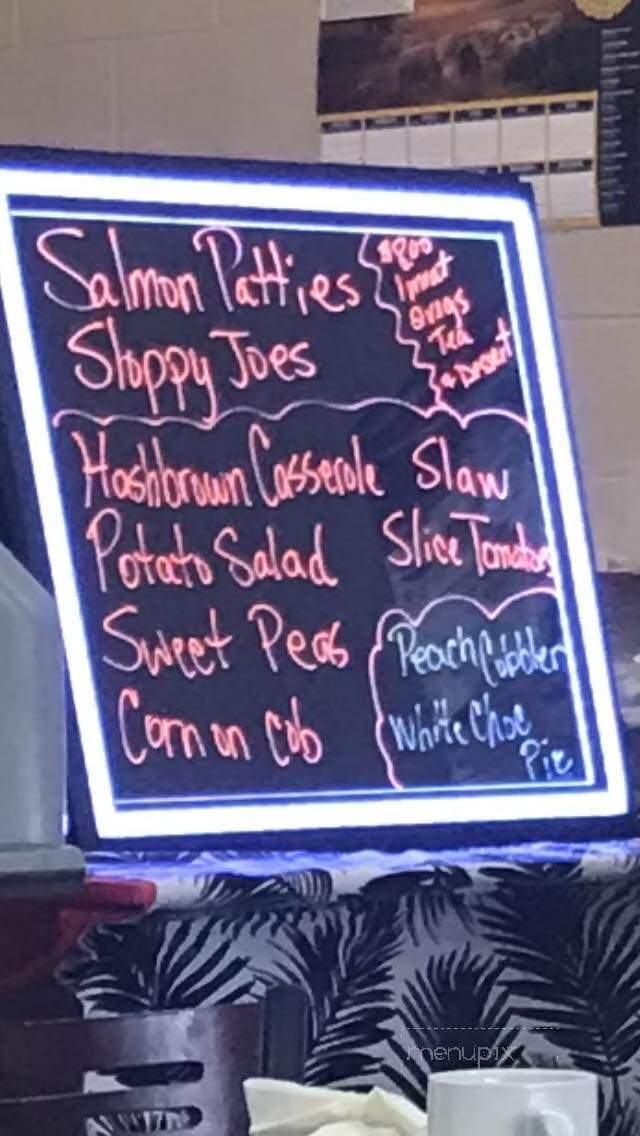 Salmon Patties
Sloppy Joes
$800
1 meat
2 vegs
Tea
& Desert
Hashbrown Casserole
Potato Salad
Sweet Peas
Corn on Cob
Slaw
Slice Tomatoes
Peach Cobbler
White Choc
Pie
menupix